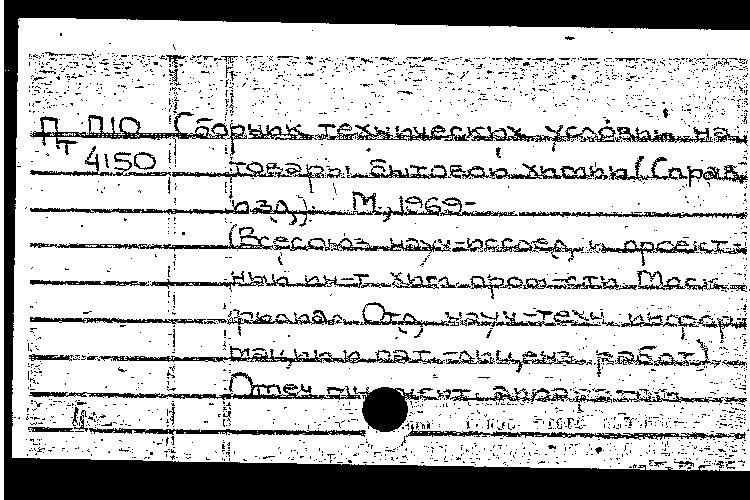 Пт П10 Сборник технических условий на
4150 товары бытовой химии (Справ.
изд.). М., 1969-
(Всесоюз. науч-исслед. и проект-
ный ин-т хим. пром-сти. Моск.
филиал. Отд. науч-техн. информа
ции и пат.-лиценз. работ)
Отеч. аппаратом